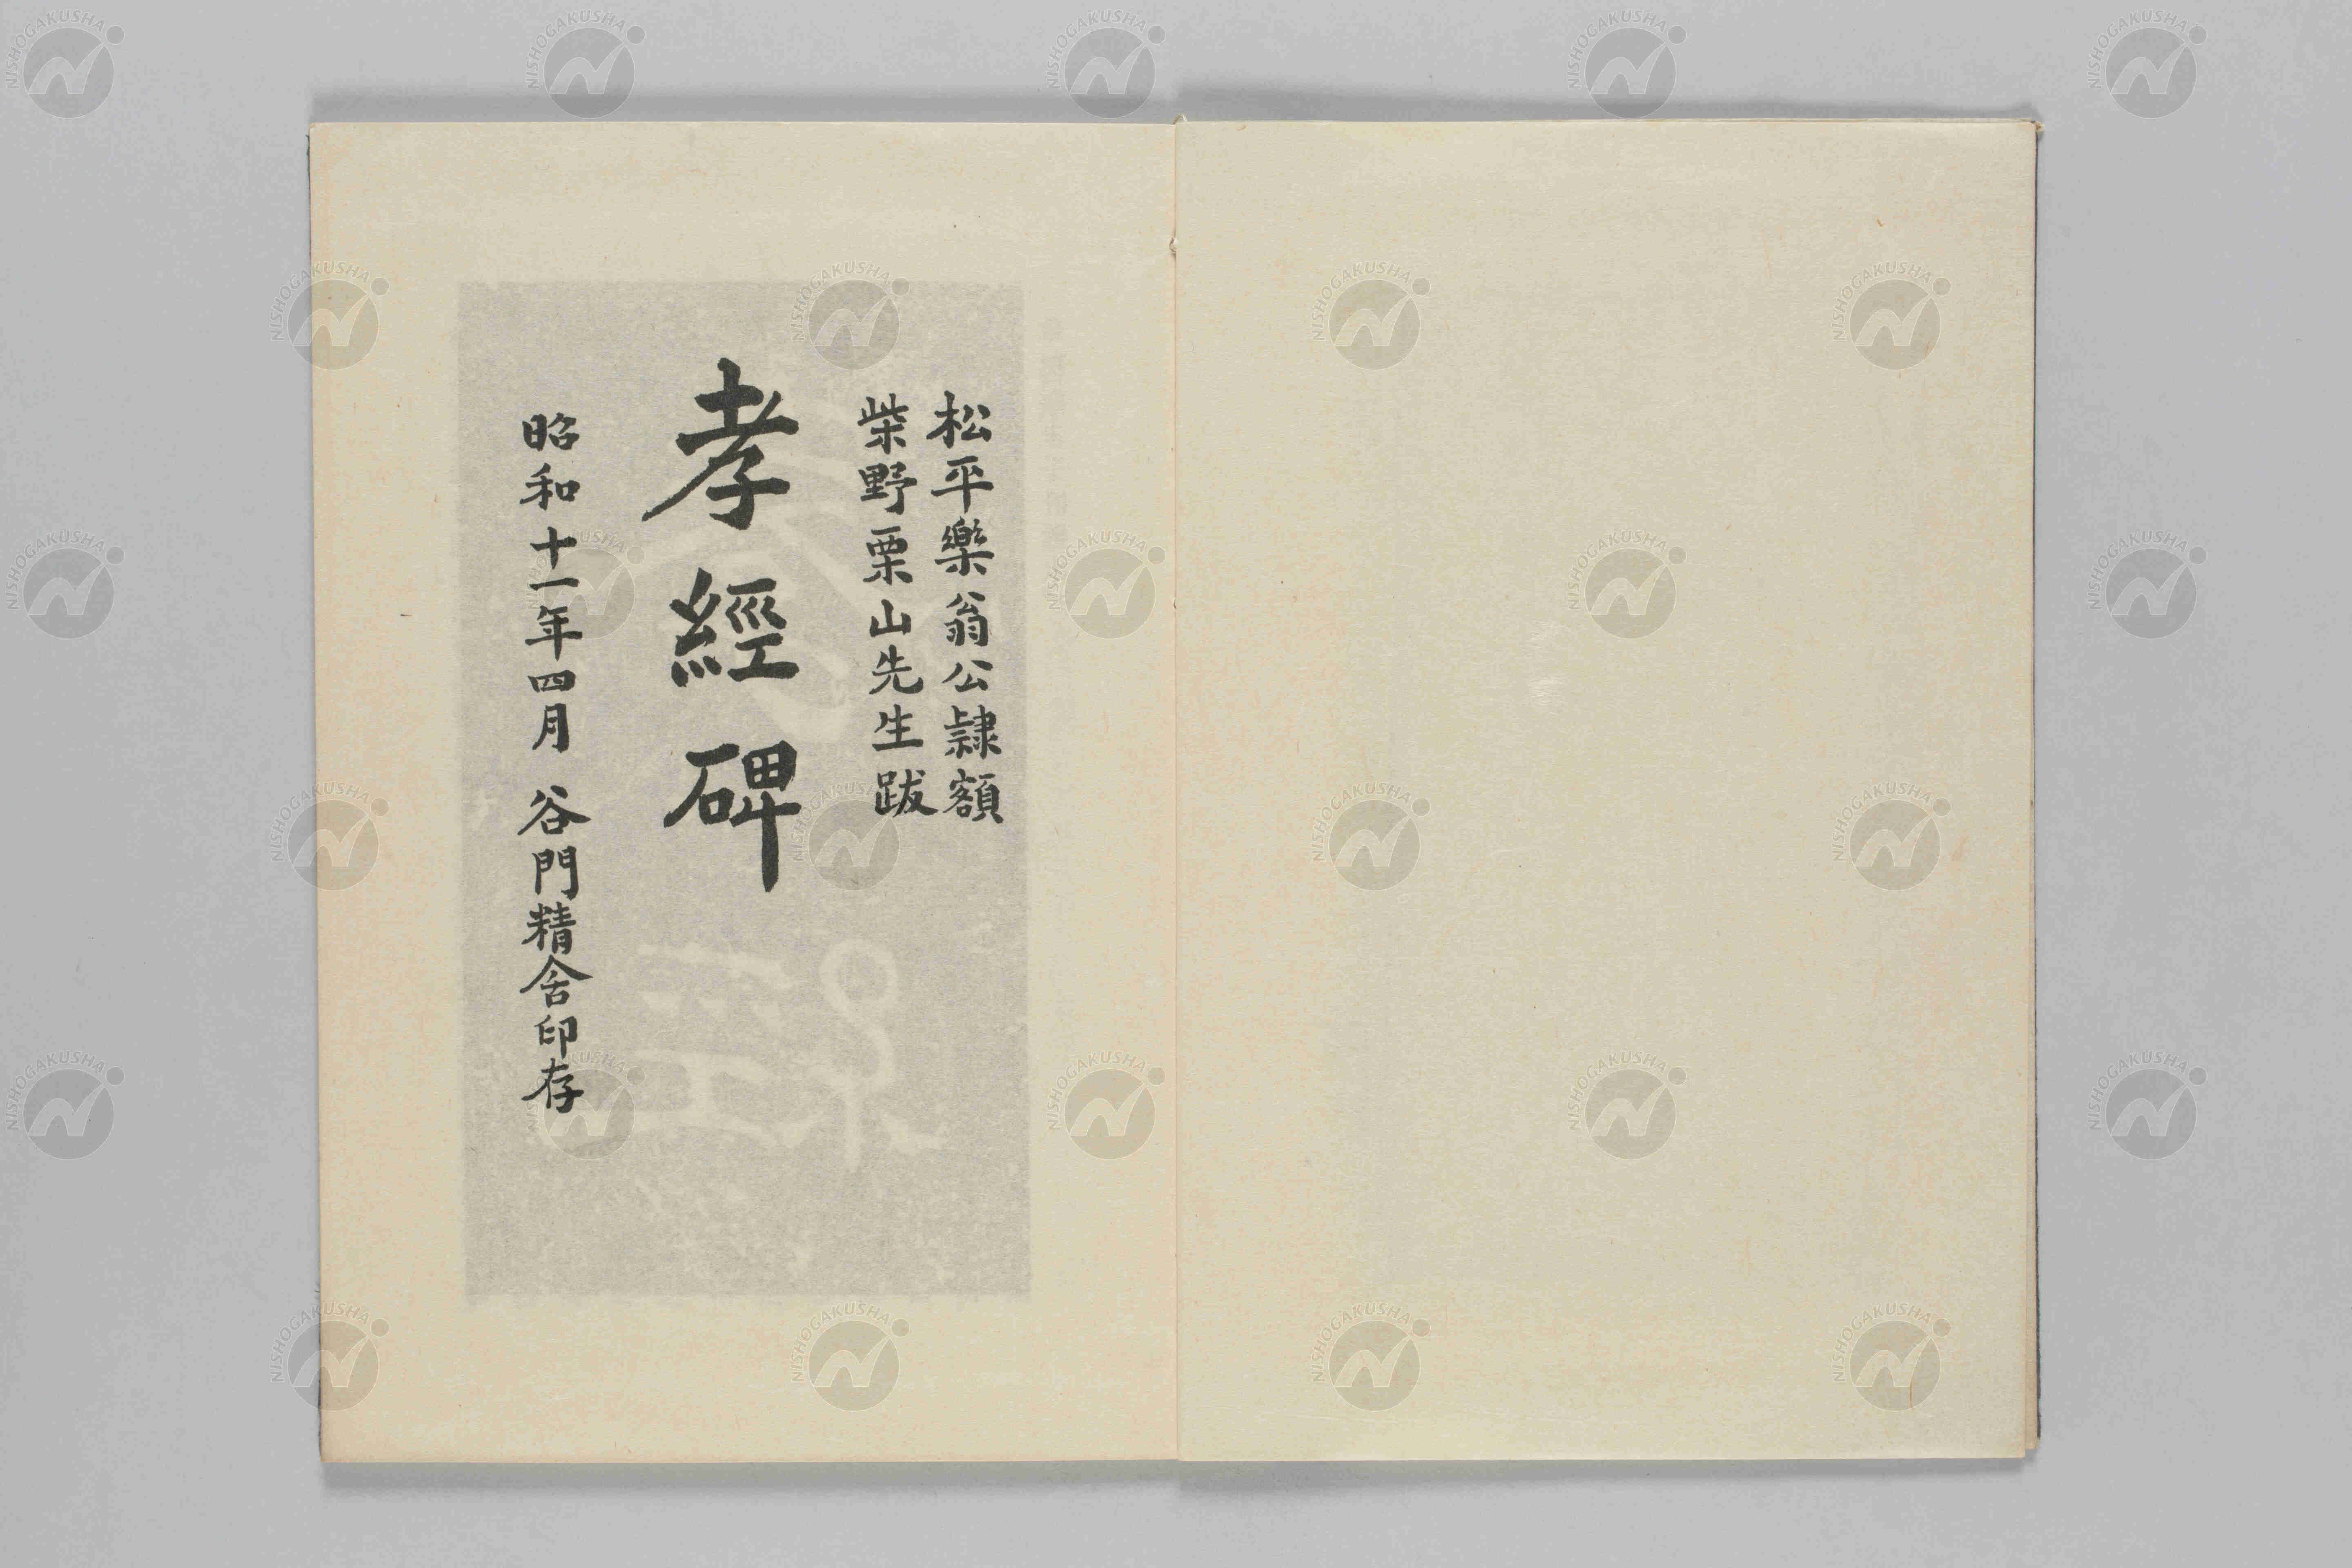 松平樂翁公隷額
柴野栗山先生跋
孝經碑
昭和十一年四月 谷門精舍印存
NISHOGAKUSHA